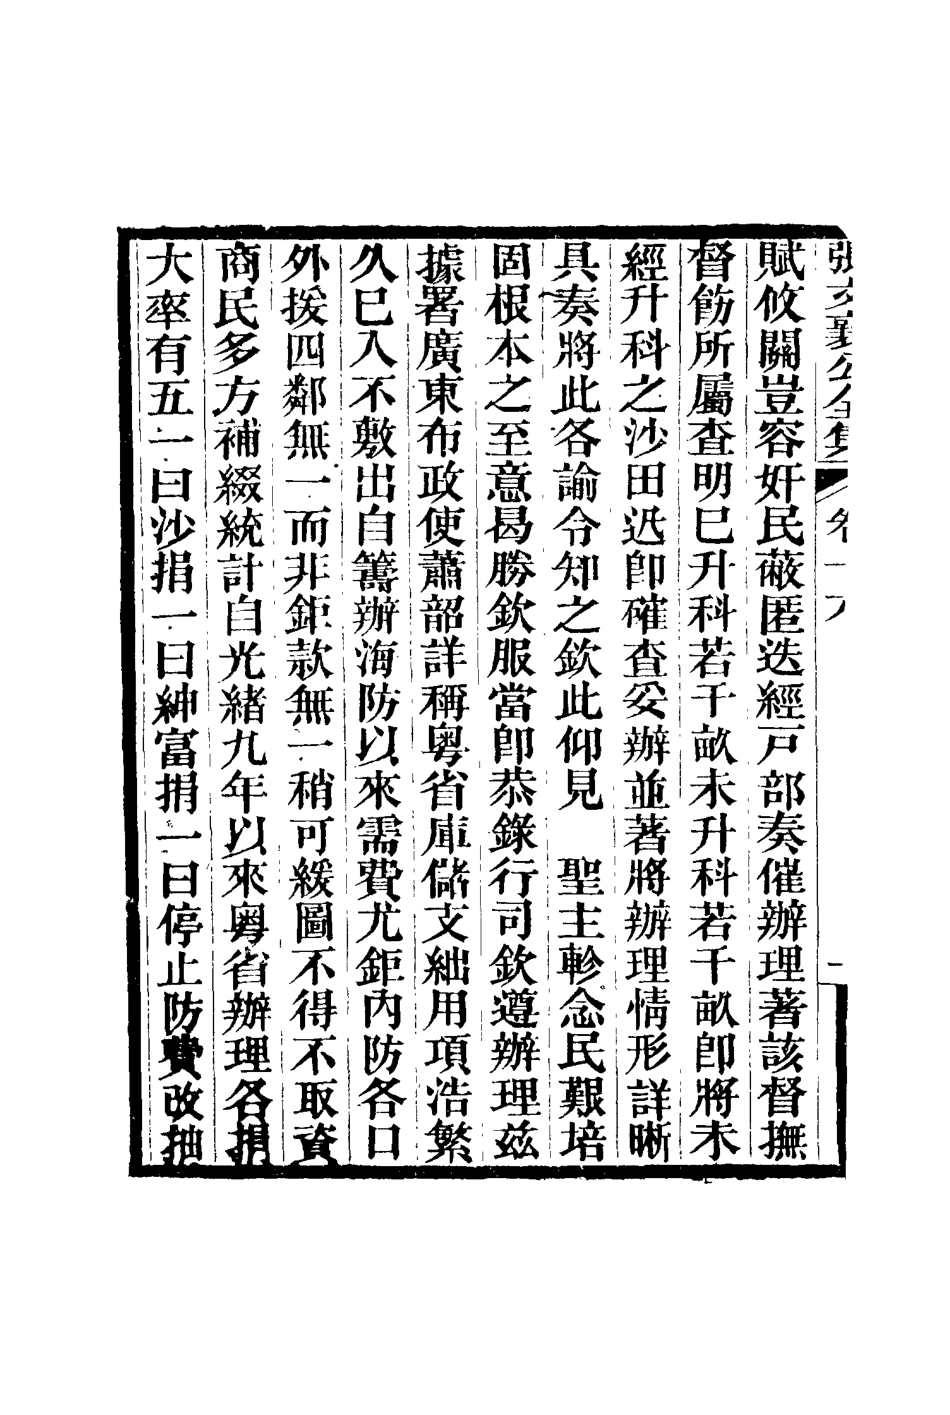 張文襄公全集 卷十六 二
賦攸關豈容奸民蔽匿迭經戸部奏催辦理著該督撫
督飭所屬查明已升科若干畝未升科若干畝卽將未
經升科之沙田迅卽確查妥辦並著將辦理情形詳晰
具奏將此各諭令知之欽此仰見 聖主軫念民艱培
固根本之至意曷勝欽服當卽恭錄行司欽遵辦理茲
據署廣東布政使蕭韶詳稱粤省庫儲支絀用項浩繁
久已入不敷出自籌辦海防以來需費尤鉅內防各口
外援四鄰無一而非鉅款無一稍可緩圖不得不取資
商民多方補綴統計自光緒九年以來粤省辦理各捐
大率有五一曰沙捐一曰紳富捐一曰停止防費改抽